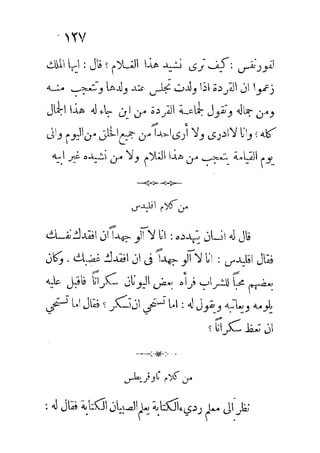 ١٢٧
لفورنفس : كيف ترى نشيد هذا الغلام ؟ قال : ايها الملك
زعموا ان القردة اذا ولدت تجلس عند ولدها وتتعجب منه
ومن جماله وتقول لجماعة القردة من اين جاء له هذا الجمال
كله ؟ وانا لا ادرى ولا أرى احداً من جميع الخلق من اليوم والى
يوم القيامة يتعجب من هذا الغلام ولا من نشيده غير ابيه
من كلام اقليدس
قال له انسان يتهدده : انا لا آلو جهداً ان افقدك نفسك
فقال اقليدس : انا لا آلو جهداً في ان افقدك غضبك . وكان
بعضهم محباً للشراب فرآه بعض اليونان سكراناً فاقبل عليه
يلومه ويعاتبه ويقول له : اما تستحي ان تسكر ؟ فقال اما تستحي
ان تعظ سكراناً ؟
من كلام ثاوفريطس
نظر الى معلم رديء الكتابة يعلم الصبيان الكتابة فقال له :